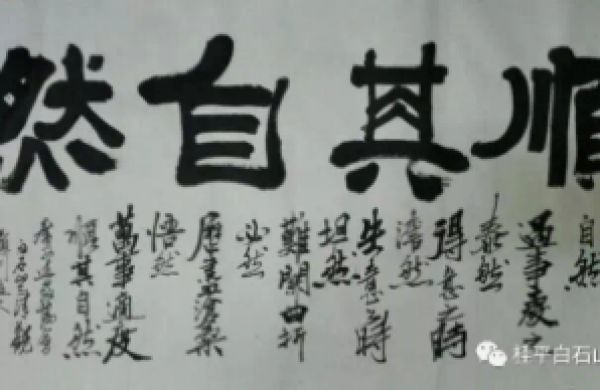 順其自然
自然
遇事處之
泰然
得意之時
淡然
失意之時
坦然
難關曲折
必然
歷盡滄桑
悟然
萬事通度
順其自然
桂平白石山